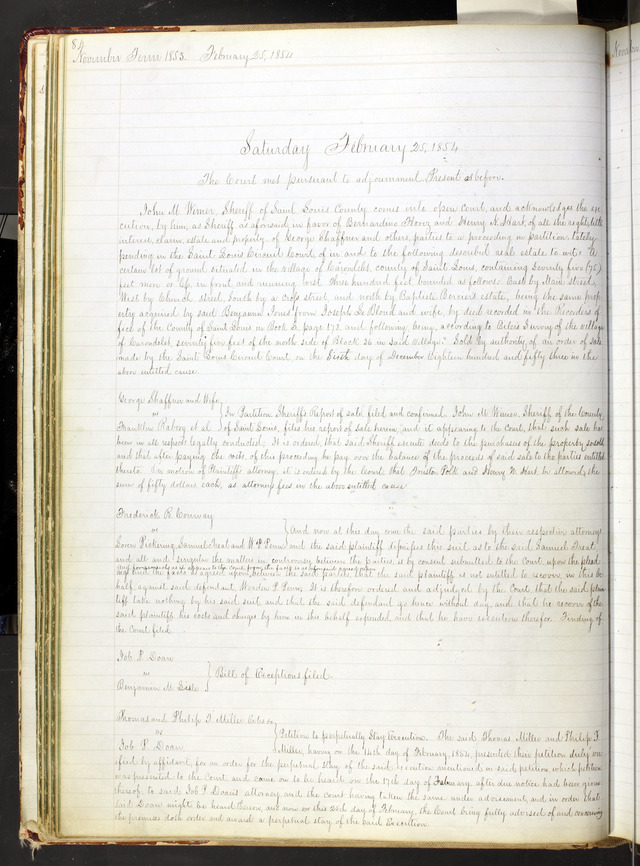 84
November Term 1853. February 25, 1854
Saturday February 25, 1854.
The Court met pursuant to adjournment Present as before.
John M Wimer, Sheriff of Saint Louis County comes into open Court, and acknowledges the exe
cution, by him, as Sheriff as aforesaid, in favor of Bernardine and Henry N. Hart, of all the right, title
interest, claim, estate and property of George Shaffner and others, parties to a proceeding in partition lately
pending in the Saint Louis Circuit Court, of in and to the following described real estate to wit: A
certain lot of ground situated in the village of Carondelet, county of Saint Louis, containing seventy five (75)
feet more or less, in front and running west three hundred feet bounded as follows: East by Main Street,
West by Church street, South by a Cross street, and north by Baptiste estate, being the same prop
erty acquired by said Benjamin from Joseph Le Blond and wife, by deed recorded in the Recorders of
fice of the County of Saint Louis in Book page 173. and following, being, according to Survey of the village
of Carondelet, seventy five feet of the north side of Block 36 in said village: Sold by authority of an order of sale
made by the Saint Louis Circuit Court, on the Sixth day of December Eighteen hundred and fifty three in the
above entitled cause.
George Shaffner and Wife
vs
Franklin et al
In Partition. Sheriffs Report of sale, filed and confirmed. John M. Wimer, Sheriff of the County
of Saint Louis, files his report of sale herein, and it appearing to the Court, that such sale has
been in all respects legally conducted; It is ordered, that said Sheriff execute deeds to the purchasers of the property so sold
and that after paying the costs, of this proceeding he pay over the balance of the proceeds of said sale to the parties entitled
thereto. On motion of Plaintiffs attorney, it is ordered by the Court, that Trusten Polk and Henry N. Hart, be allowed, the
sum of fifty dollars each, as attorneys fees in the above entitled cause
Frederick R. Conway
vs
Loren Pickering, Samuel Treat and W. P. Penn
And now at this day come the said parties by their respective attorneys
and the said plaintiff dismisses this suit as to the said Samuel Treat
and all and singular the matters in controversy between the parties, is by consent submitted to the Court upon the plead
ings and the facts as agreed upon, between the said parties, that the said plaintiff is not entitled to recover in this be
half against said defendant P. Penn; It is therefore ordered and adjudged by the Court, that the said plain
tiff take nothing by his said suit, and that the said defendant go hence without day, and that he recover of the
said plaintiff his costs and charges by him in this behalf expended, and that he have execution therefor. Finding of
the Court filed.
Job P. Doan
vs
Benjamin M.
Bill of Exceptions filed.
Thomas and Philip F. Miller
vs
Job P. Doan
Petition to perpetually Stay Execution. The said Thomas Miller and Philip F.
Miller, having on the 14th day of February, 1854, presented their petition duly veri
fied by affidavit, for an order for the perpetual stay of the said execution mentioned in said petition which petition
was presented to the Court and came on to be heard on the 17th day of February after due notice had been given
thereof, to said Job P. Doan's attorney, and the court having taken the same under advisement, and in order that
said Doan might be heard therein, and now on this 25th day of February, the Court being fully advised of and concerning
the premises doth order and award a perpetual stay of the said Execution